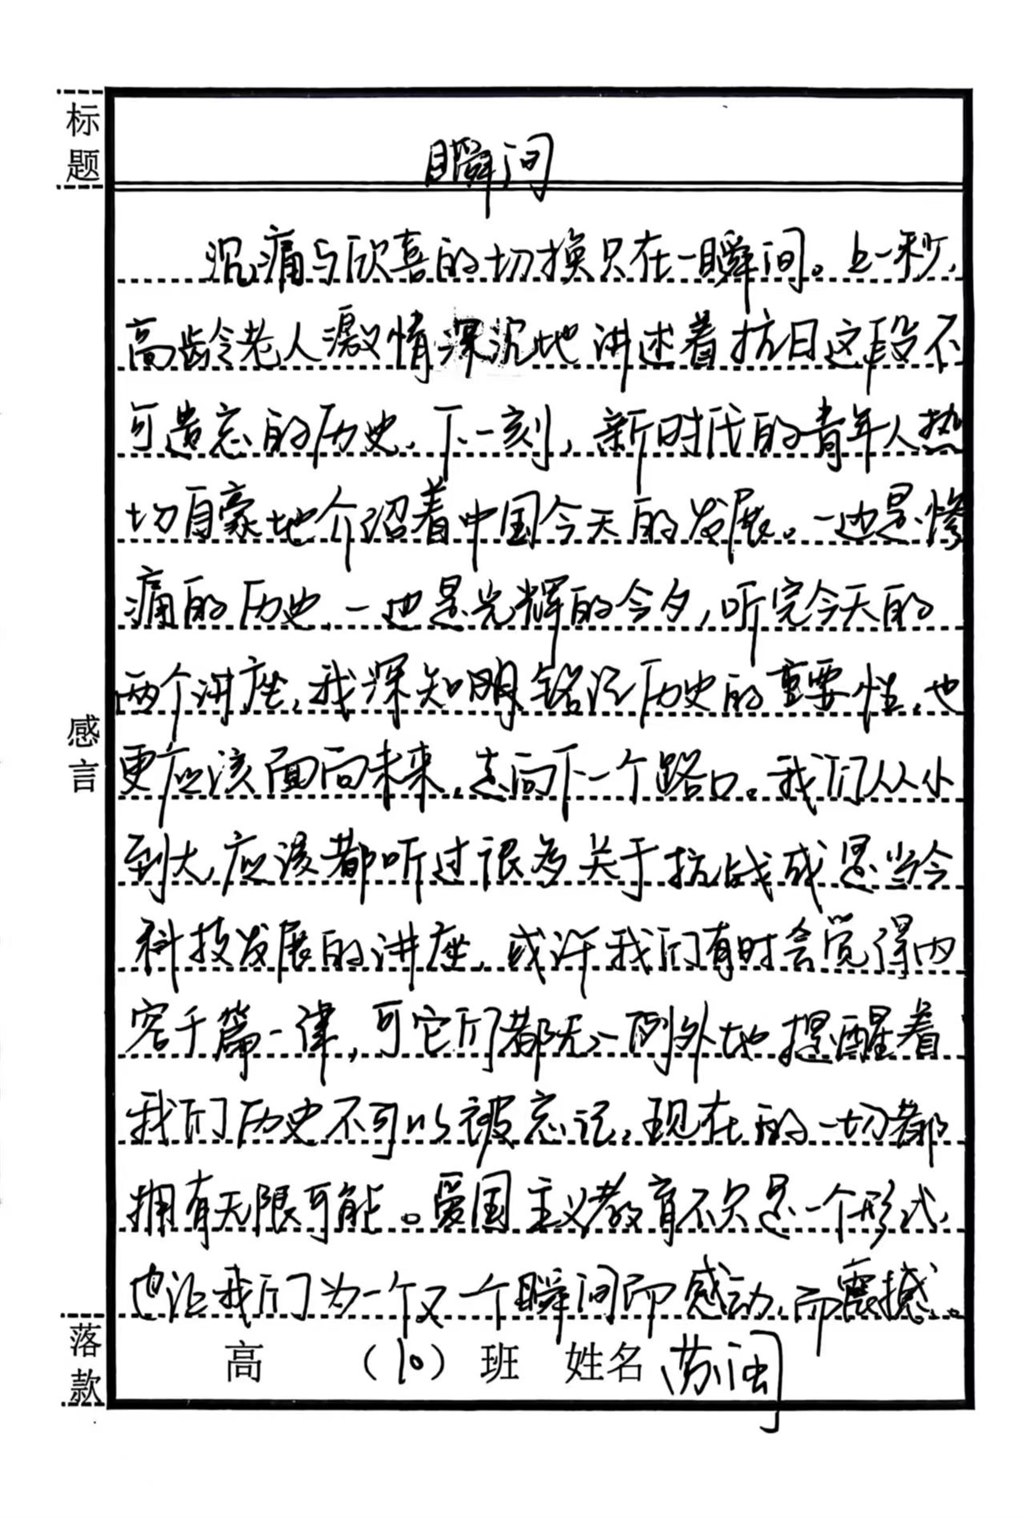 标题
瞬间
沉痛与欣喜的切换只在一瞬间。上一秒,
高龄老人激情深沉地讲述着抗日这段不
可遗忘的历史。下一刻,新时代的青年人热
切自豪地介绍着中国今天的发展。一边是惨
痛的历史,一边是光辉的今夕,听完今天的
两个讲座,我深知明铭记历史的重要性,也
更应该面向未来,走向下一个路口。我们从小
到大,应该都听过很多关于抗战或是当今
科技发展的讲座,或许我们有时会觉得内
容千篇一律,可它们都无一例外地提醒着
我们历史不可以被忘记,现在的一切都
拥有无限可能。爱国主义教育不只是一个形式,
也让我们为一个又一个瞬间而感动,而震撼。
感言
落款
高 (10) 班 姓名 苏闽